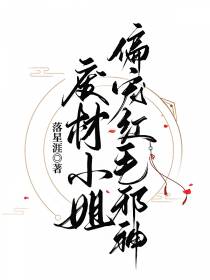 偏宠红毛邪神
废材小姐
落星涯◎著